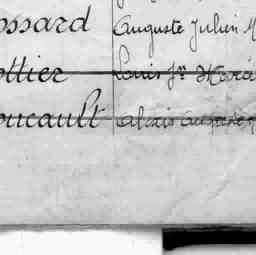 ossard Auguste Julien M
ottier Louis Jn Marie
oucault Alexis Auguste